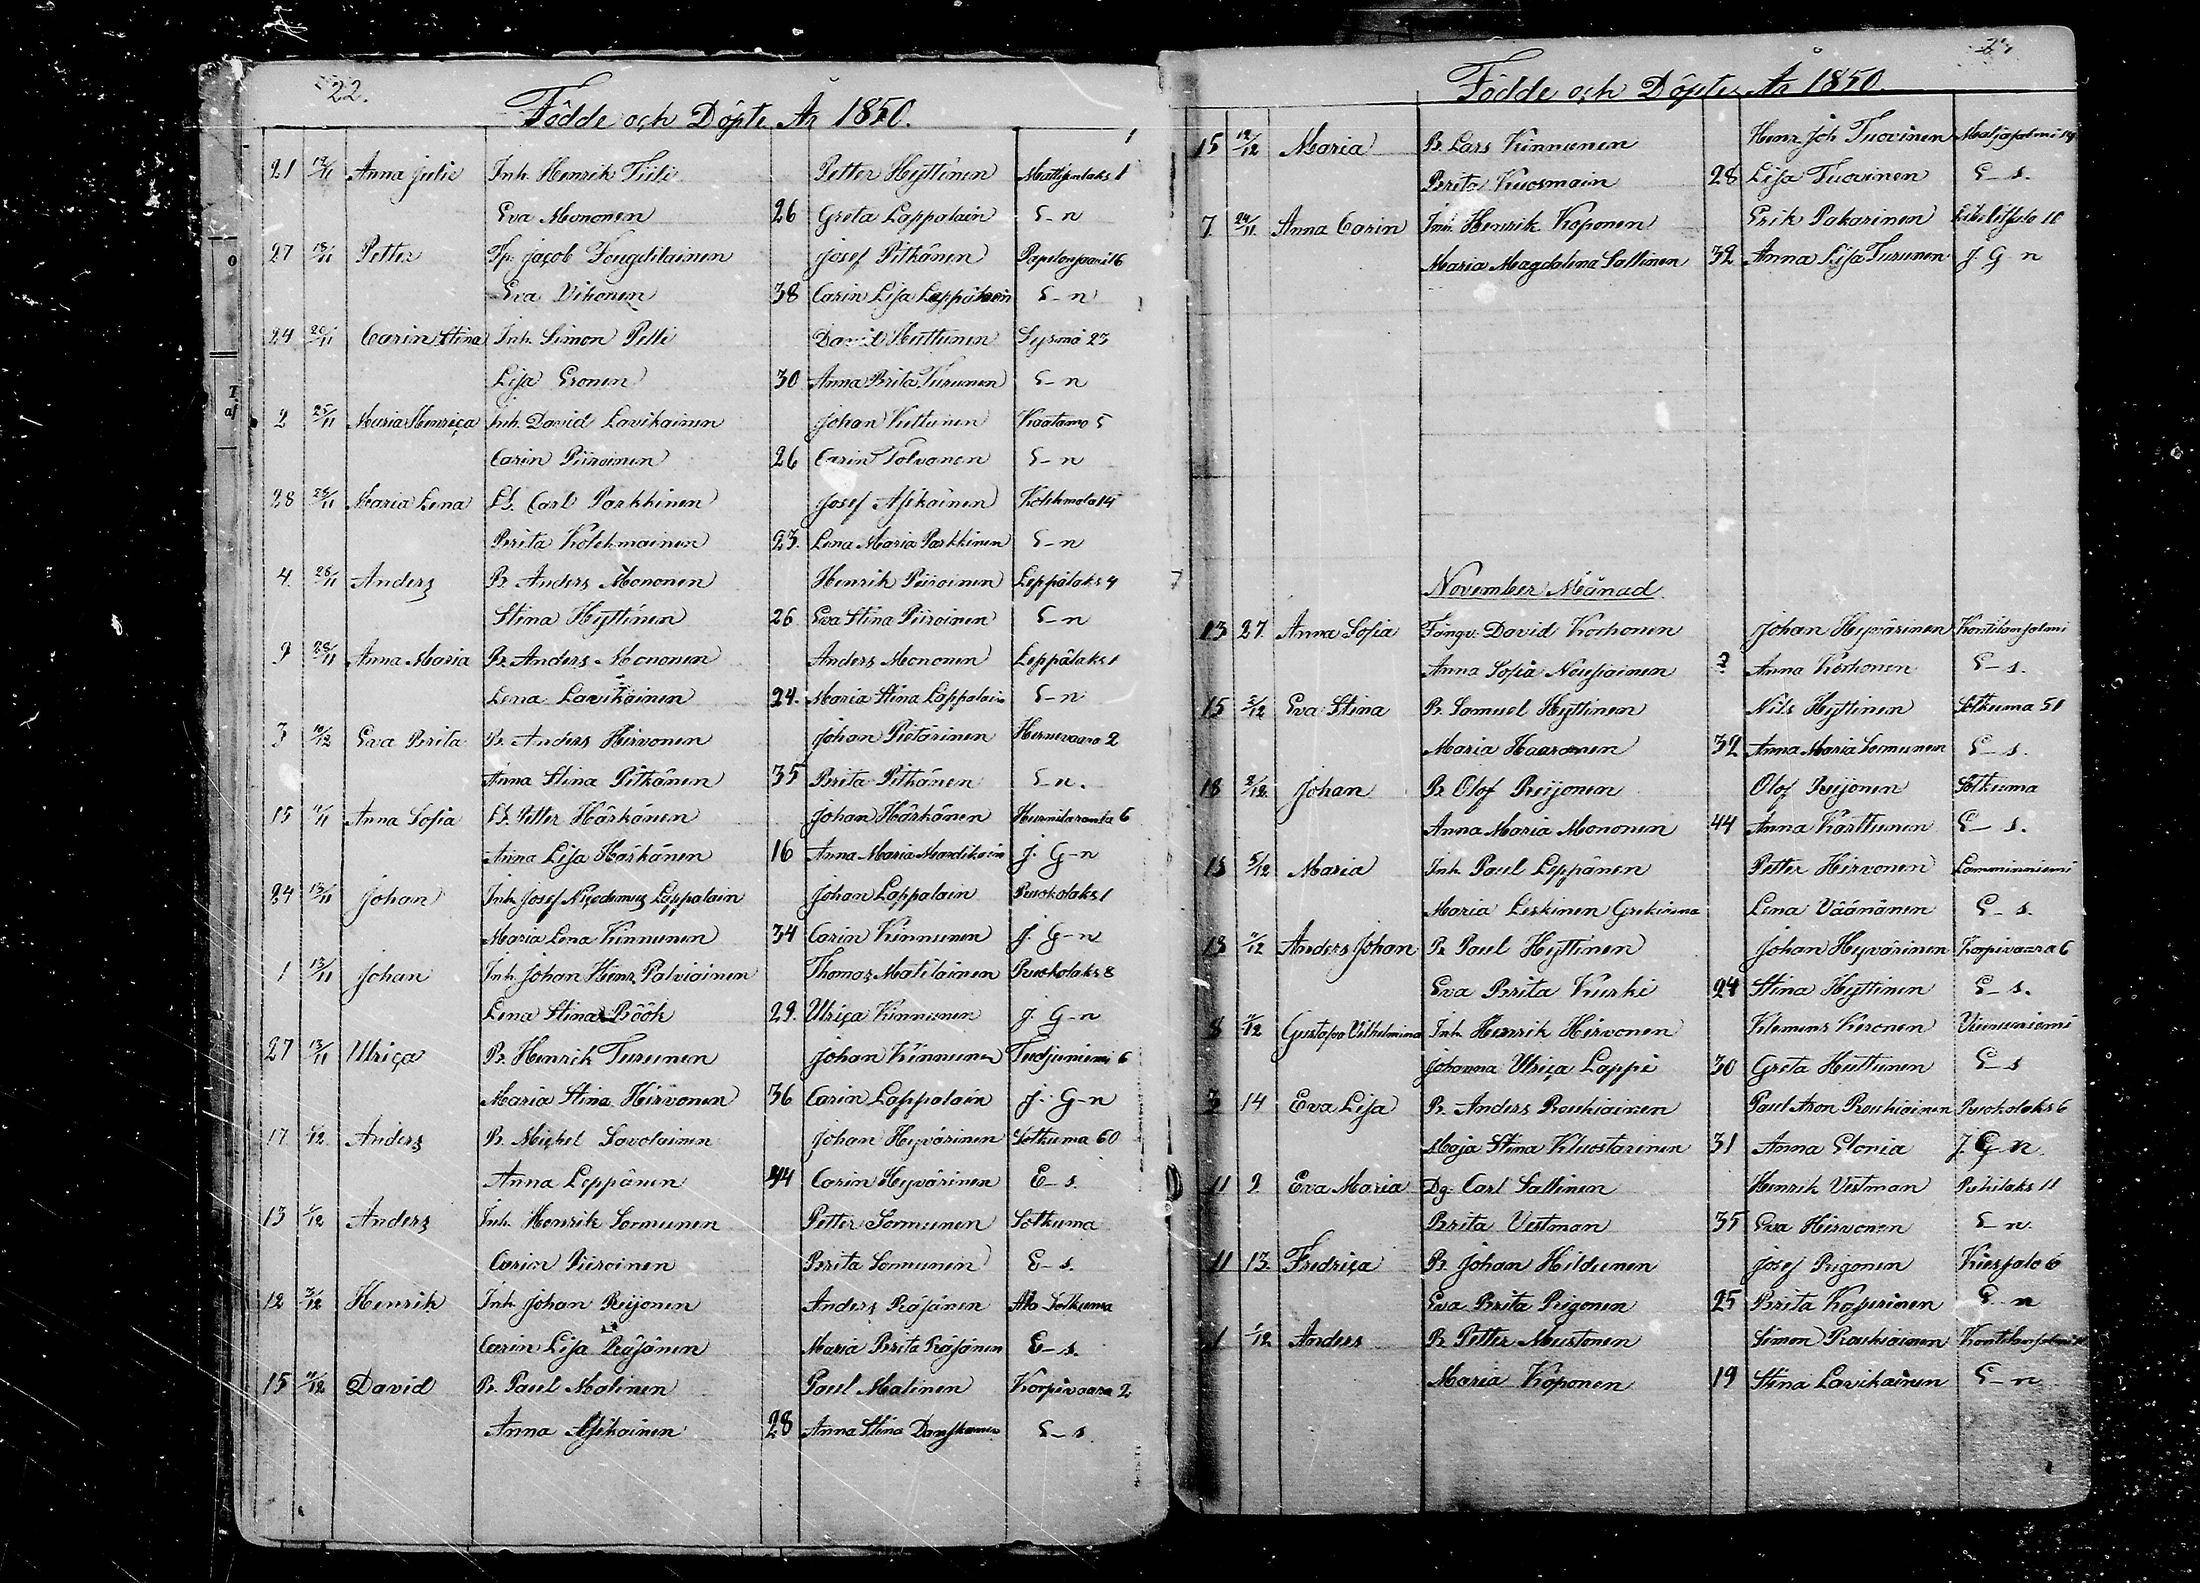 22.
Födde och Döpte År 1850.
21 12/11 Anna Julie Inh. Henrik Tiili Petter Hyttinen Mattjalaks 1
Eva Mononen 26 Greta Lappalain E-n
27 13/11 Petter Tp. Jacob Fougdilainen Josef Pitkänen Papelonsaari 16
Eva Vihonen 38 Carin Lisa Leppäläin E-n
24 20/11 Carin Stina Inh. Simon Pelli David Huttunen Sysmä 23
Lisa Eronen 30 Anna Brita Turunen E-n
2 25/11 Maria Henrica Inh. David Lavikainen Johan Kuttunen Kaatamo 5
Carin Piiroinen 26 Carin Tolvanen E-n
28 26/11 Maria Lena Ld. Carl Parkkinen Josef Asikainen Kolehmola 14
Brita Kolehmainen 23. Lena Maria Parkkinen E-n
4. 28/11 Anders B. Anders Mononen Henrik Piiroinen Leppälaks 4
Stina Hyttinen 26 Eva Stina Piiroinen E-n
9 28/11 Anna Maria B. Anders Mononen Anders Mononen Leppälaks 1
Lena Lavikainen 24. Maria Stina Lappalain E-n
3 10/12 Eva Brita B. Anders Hirvonen Johan Pietarinen Hernevaara 2
Anna Stina Pitkänen 35 Brita Pitkänen E-n.
15 11/11 Anna Sofia Ld. Petter Härkänen Johan Härkänen Hurnilaranta 6
Anna Lisa Härkänen 16 Anna Maria Mardikain J. G-n
24 13/11 Johan Inh. Josef Nicodemus Lappalain Johan Lappalain Ruokolaks 1
Maria Lena Kinnunen 34 Carin Kinnunen J. G-n
1 13/11 Johan Inh. Johan Henr. Palviainen Thomas Matilainen Ruokolaks 8
Lena Stina Böök 29. Ulrica Kinnunen J. G-n
27 13/11 Ulrica B. Henrik Turunen Johan Kinnunen Tudjuniemi 6
Maria Stina Hirvonen 36 Carin Lappalain J. G-n
17 1/12 Anders B. Michel Savolainen Johan Hyvärinen Sotkuma 60
Anna Leppänen 44 Carin Hyvärinen E-s.
13 1/12 Anders Inh. Henrik Sormunen Petter Sormunen Sotkuma
Carin Piiroinen Brita Sormunen E-s.
12 3/12 Henrik Inh. Johan Reijonen Anders Räsänen Ala Sotkuma
Carin Lisa Räsänen Maria Brita Räsänen E-s.
15 7/12 David B. Paul Malinen Paul Malinen Korpivaara 2
Anna Asikainen 28 Anna Stina Danskanen E-s.
23
Födde och Döpte År 1850.
15 12/12 Maria B. Lars Kinnunen Henr. Joh Tuovinen Maljasalmi 14
Brita Kuosmain 28 Lisa Tuovinen E-s.
7 24/11 Anna Carin Inh. Henrik Koponen Erik Pakarinen 10
Maria Magdalena Sallinen 32 Anna Lisa Turunen J. G-n
November Månad.
13 27 Anna Sofia Fångv. David Korhonen Johan Hyvärinen Kontilansalmi
Anna Sofia Nousiainen ? Anna Korhonen E-s.
15 2/12 Eva Stina B. Samuel Hyttinen Nils Hyttinen Sotkuma 51
Maria Haaranen 32 Anna Maria Sormunen E-s.
18 2/12 Johan B. Olof Reijonen Olof Reijonen Sotkuma
Anna Maria Mononen 44 Anna Karttunen E-s.
13 5/12 Maria Inh. Paul Leppänen Petter Hirvonen Lamminniemi
Maria Leskinen Grekinna Lena Väänänen E-s.
13 7/12 Anders Johan B. Paul Hyttinen Johan Hyvärinen Korpivaara 6
Eva Brita Kurki 24 Stina Hyttinen E-s.
8 7/12 Gustafva Vilhelmina Inh. Henrik Hirvonen Klemens Keronen Viinuniemi
Johanna Ulrica Lappi 30 Greta Huttunen E-s
3 14 Eva Lisa B. Anders Rouhiainen Paul Aron Rouhiainen Ruokolaks 6
Maja Stina Kluostarinen 31 Anna Elonia J. G-n.
11 9 Eva Maria Dg. Carl Sallinen Henrik Vestman Rukilaks 11
Brita Vestman 35 Eva Hirvonen E-n.
11 13 Fredrica B. Johan Hildunen Josef Rigonen Kiesfalo 6
Eva Brita Rigonen 25 Brita Koperinen E-n
1 1/12 Anders B. Petter Mustonen Simon Rouhiainen Kontilansalmi
Maria Koponen 19 Stina Lavikainen E-n